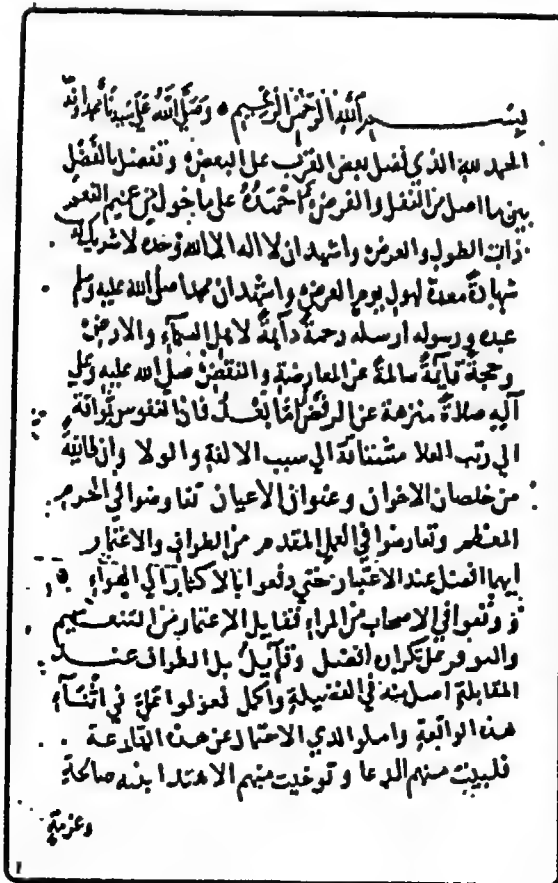 بسم الله الرحمن الرحيم وصلى الله على سيدنا محمد وآله
الحمد لله الذي فضل بعض القرب على البعض وتفضل بالفضل
بين ما اصل من النفل والفرض احمده على ما خول من عميم النعم
ذات الطول والعرض واشهد ان لا اله الا الله وحده لا شريك له
شهادة معدة لهول يوم العرض واشهد ان محمدا صلى الله عليه وسلم
عبده ورسوله ارسله رحمة دايمة لاهل السماء والارض
وحجة قايمة سالمة عن المعارضة والنقض صلى الله عليه وعلى
آله صلاة منزهة عن الرفض اما بعد فان النفوس تواقة
الى رتب العلا مشتاقة الى سبب الالفة والولا وان طايفة
من خلصان الاخوان وعنوان الاعيان تفاوضوا في الحرم
المعظم وتعارضوا في العمل المقدم من الطواف والاعتمار
ايهما افضل عند الاعتبار حتى دفعوا بالاكثار الى الهواء
و وقعوا في الاصحاب من المراء فقايل الاعتمار من التنعيم
والتوفر على تكراره افضل وقآيل بل الطواف عند
المقابلة اصل بذ في الفضيلة واكمل فعولوا علي في اثناء
هذه الواقعة واملوا لدي الاحتمال عن هذه القارعة
فلبيت منهم الدعا وتوخيت منهم الاهتدا بنية صالحة
وعزمة
١